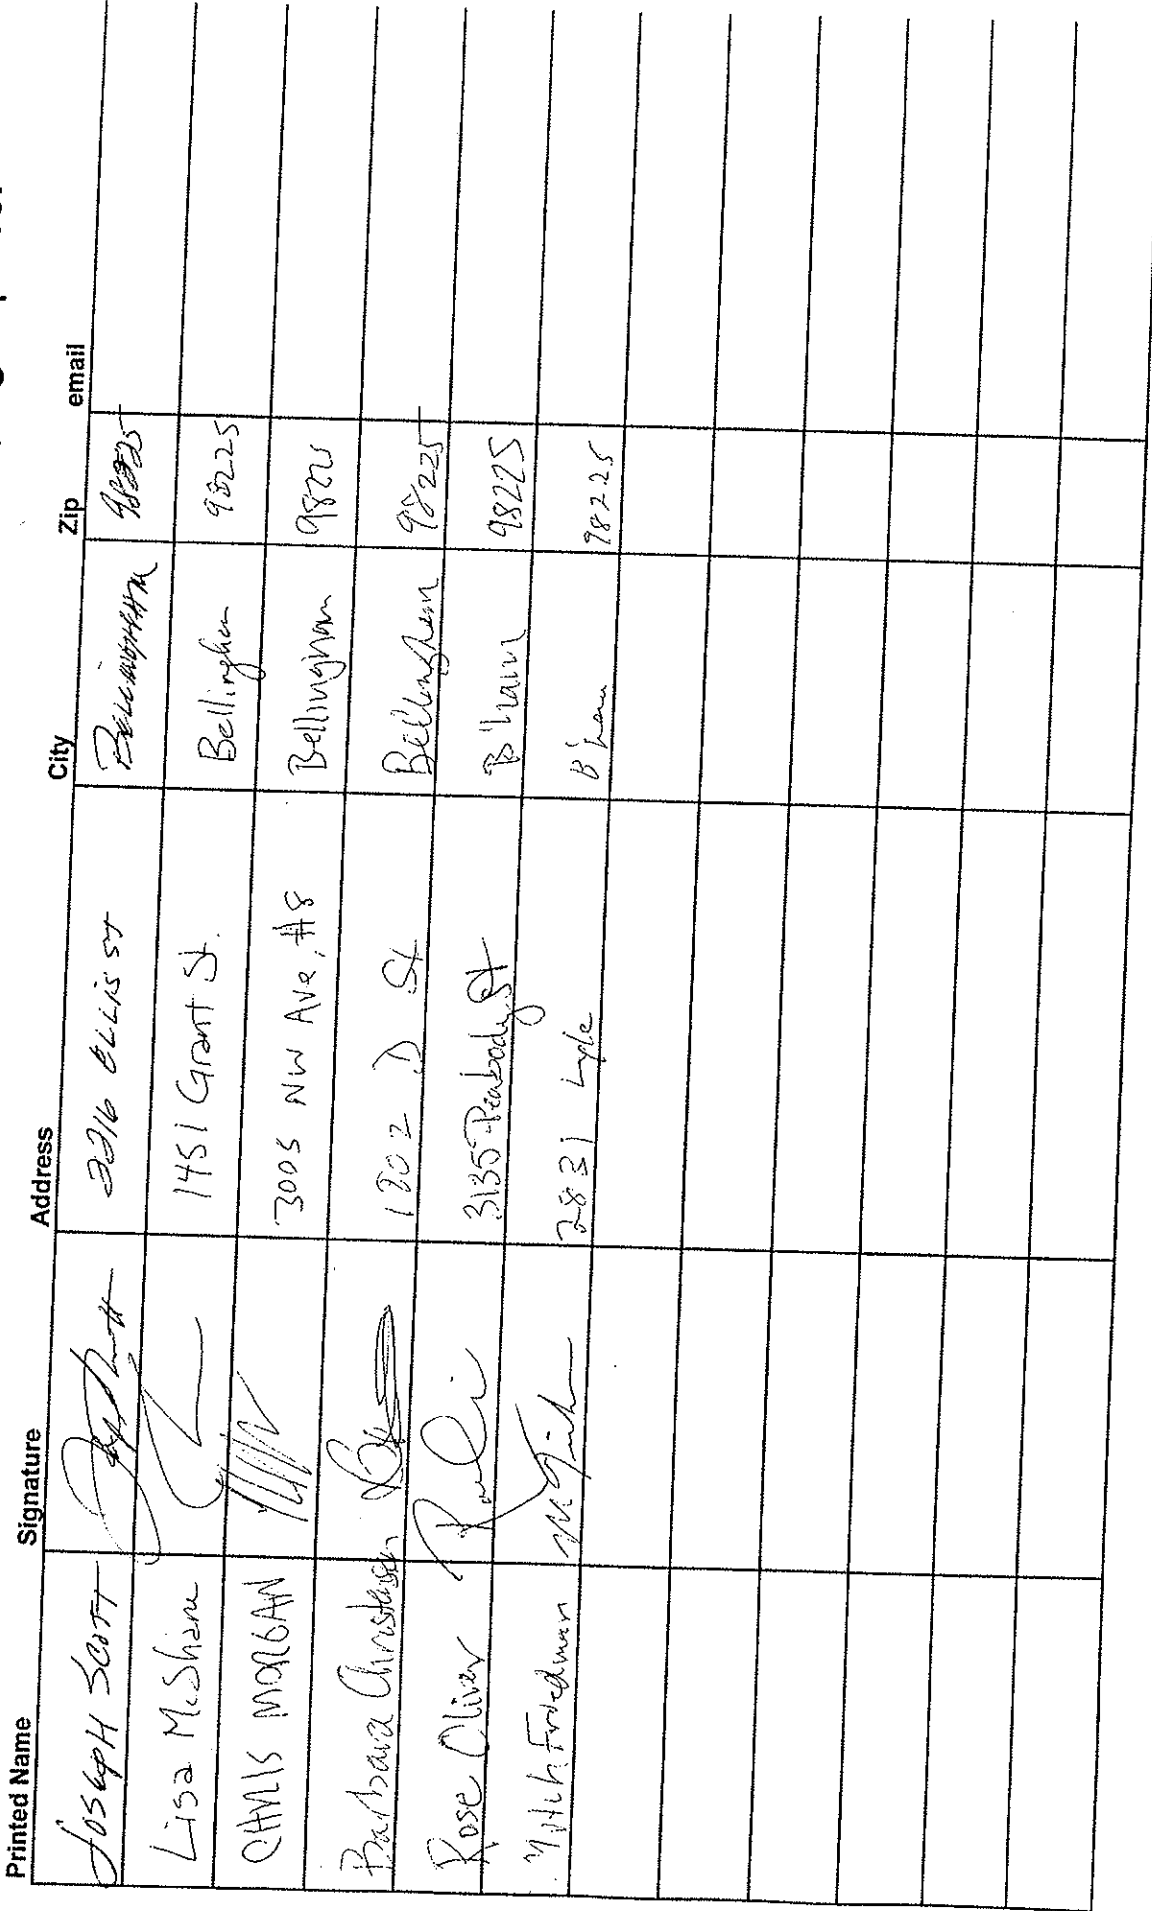 Printed Name Signature Address City Zip email
Joseph Scott 2216 Ellis St Bellingham 98225
Lisa McShane 1451 Grant St. Bellingham 98225
CHRIS MORGAN 3005 NW Ave, #8 Bellingham 98225
Barbara Christensen 1802 D St Bellingham 98225
Rose Oliver 3135 Peabody St B'ham 98225
Mitch Friedman 2831 Lyle B'ham 98225